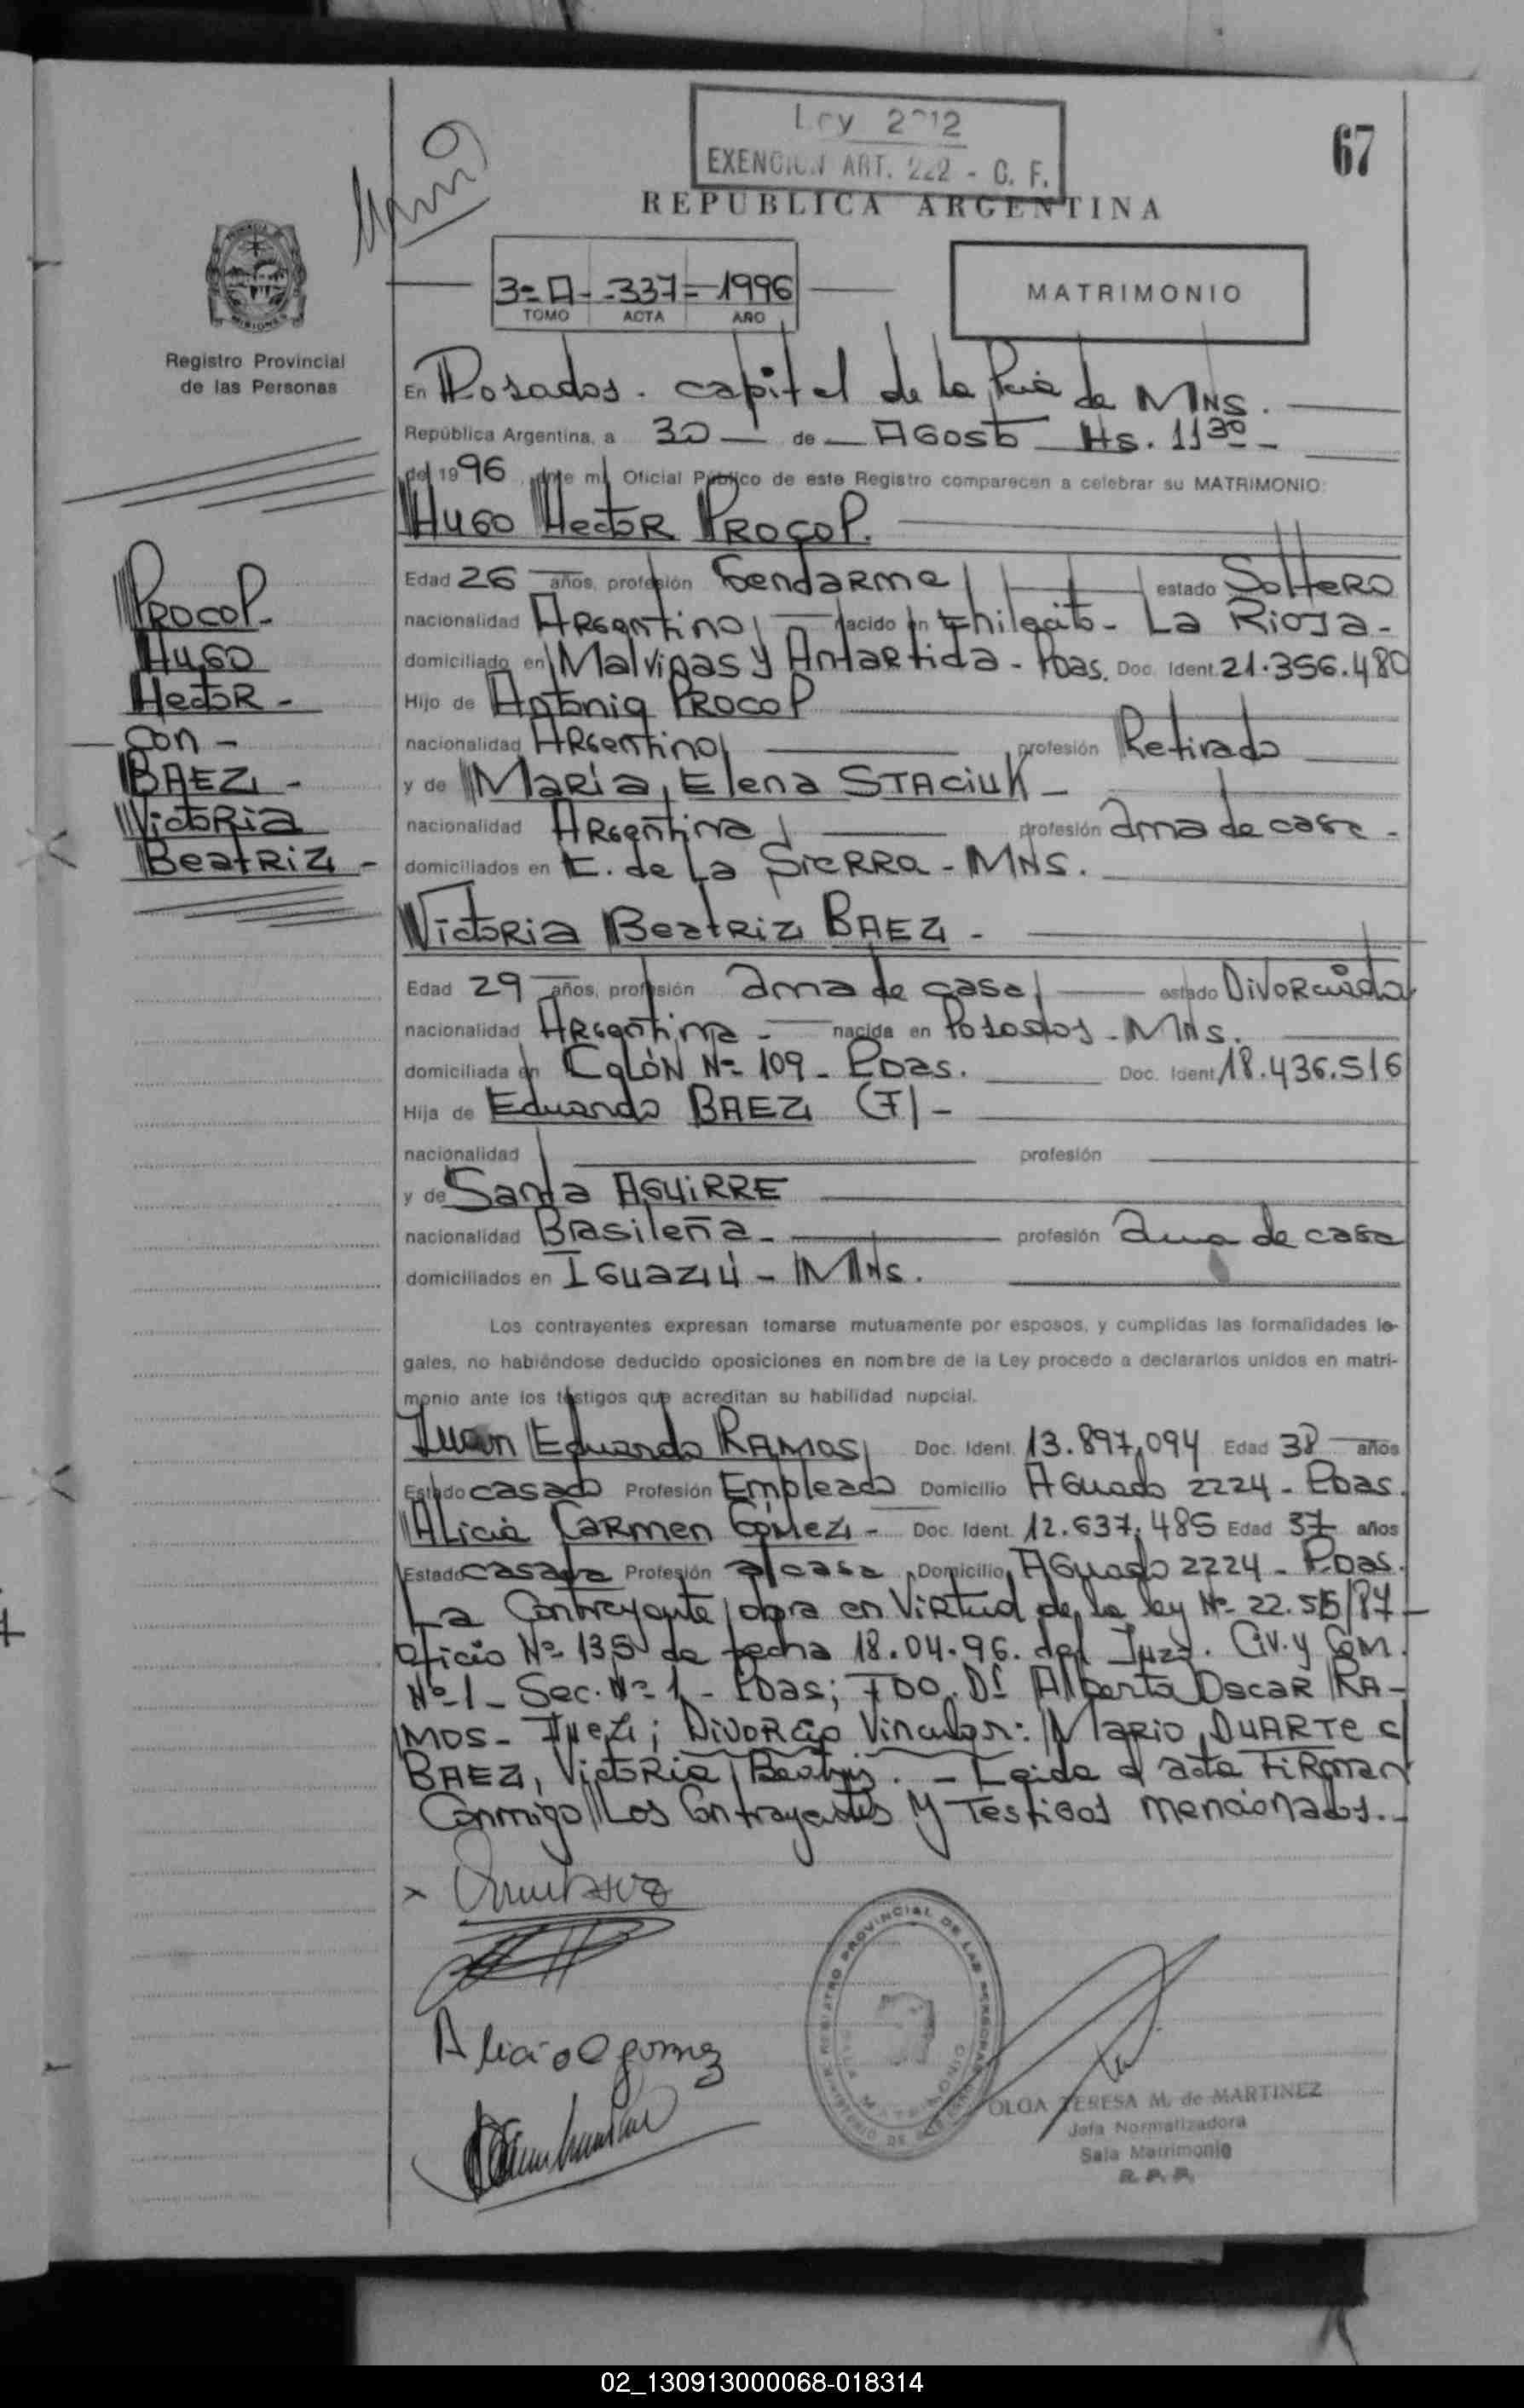 Ley 2212
EXENCION ART. 222 - C. F.
67
REPUBLICA ARGENTINA
3=A- -337= 1996
TOMO ACTA AÑO
MATRIMONIO
MISIONES
Registro Provincial
de las Personas
En Posadas. capital de la Pcia de MNS.
República Argentina, a 30 de AGosto Hs. 11 30
del 1996, ante mí Oficial Público de este Registro comparecen a celebrar su MATRIMONIO:
HuGo HectoR PROCOP.
PROCOP-
HuGO
HectoR -
con -
BAEZ -
VictoRia
BeatRiZ -
Edad 26 años, profesión GendaRme estado SolteRo
nacionalidad ARGentino nacido en Chilecito - La RioJa -
domiciliado en Malvinas y AntaRtida - Pdas. Doc. Ident. 21.356.480
Hijo de Antonio PROCOP
nacionalidad ARGentino profesión Retirado
y de MaRia Elena STACiuK -
nacionalidad ARGentina profesión ama de casa -
domiciliados en C. de La SieRRa - MNS.
VictoRia BeatRiz BAEZ -
Edad 29 años, profesión ama de casa estado DivoRciada
nacionalidad ARGentina - nacida en Posadas - MNs.
domiciliada en Colón Nº 109 - Pdas. Doc. Ident. 18.436.516
Hija de Eduardo BAEZ (F) -
nacionalidad profesión
y de Santa AGuiRRE
nacionalidad Brasileña - profesión ama de casa
domiciliados en IGuazú - MNs.
Los contrayentes expresan tomarse mutuamente por esposos, y cumplidas las formalidades le-
gales, no habiéndose deducido oposiciones en nombre de la Ley procedo a declararlos unidos en matri-
monio ante los testigos que acreditan su habilidad nupcial.
Juan Eduardo RAMOS Doc. Ident. 13.897.094 Edad 38 años
Estado casado Profesión Empleado Domicilio AGuado 2224 - Pdas.
Alicia CaRmen GómeZ - Doc. Ident. 12.637.485 Edad 37 años
Estado casada Profesión a/casa Domicilio AGuado 2224 - Pdas.
La Contrayente obra en ViRtud de la ley Nº 22.515/87 -
oficio Nº 135 de fecha 18.04.96. del Juzg. Civ. y Com.
Nº 1 - Sec. Nº 1 - Pdas; FDO. Dr. Alberto Oscar RA-
MOS - Juez; DivoRcio Vincular: MaRio DUARTe c/
BAEZ, VictoRia Beatriz. - Leida el acta FiRman
Conmigo Los Contrayentes y TestiGos mencionados. -
Alicia C gomez
REGISTRO PROVINCIAL DE LAS PERSONAS
OLGA TERESA M. de MARTINEZ
Jefa Normalizadora
Sala Matrimonio
R. P. P.
02_130913000068-018314